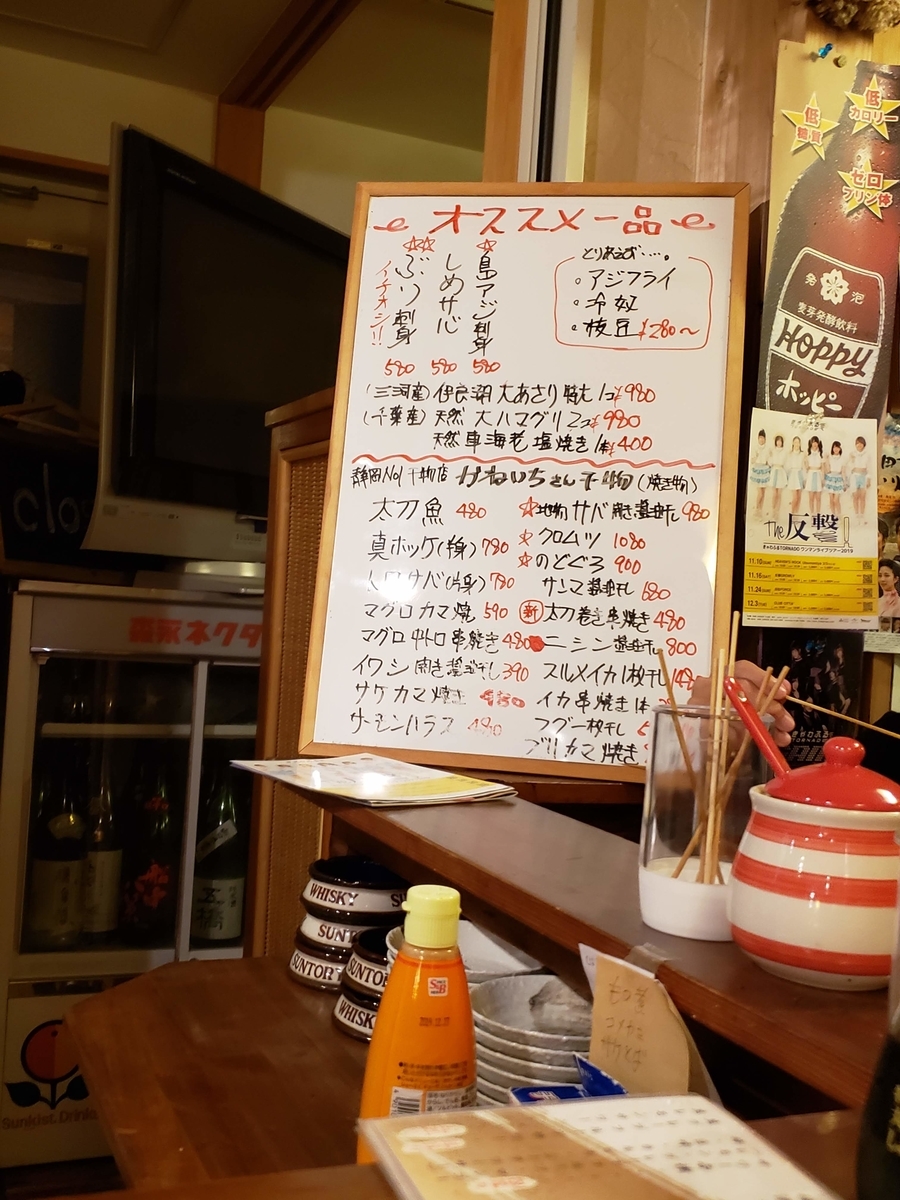 オススメ一品
島アジ刺身 580
しめサバ 580
ぶり刺身 580
イチオシ!!
とりあえず…。
・アジフライ
・冷奴
・枝豆 ¥280〜
(三河産) 伊良湖 大あさり 特大 1コ ¥980
(千葉産) 天然 大ハマグリ 2コ ¥980
天然 車海老 塩焼き 1本 ¥400
静岡No1 干物店 かねいちさん 干物 (焼き物)
太刀魚 480
真ホッケ(半身) 780
トロサバ(片身) 780
マグロカマ焼 590
マグロ中トロ串焼き 480
イワシ開き醤油干し 390
サケカマ焼き 480
サーモンハラス 480
☆地物サバ開き醤油干し 980
☆クロムツ 1080
☆のどぐろ 900
サンマ醤油干し 680
新 太刀巻き串焼き 480
ニシン醤油干し 800
スルメイカ1枚干し
イカ串焼き1本
フグ一枚干し
ブリカマ焼き
低糖質
低カロリー
ゼロプリン体
発泡
麦芽発酵飲料
HOPPY
ホッピー
The 反撃
ぎゃわふるTORNADO ワンマンライブツアー2019
11.10
11.16
11.24
12.3
clo
森永ネクタ
Sunkist. Drink
WHISKY SU
SUNT
SUNTORY
SUNTO
WHISK
S&B
もつ煮